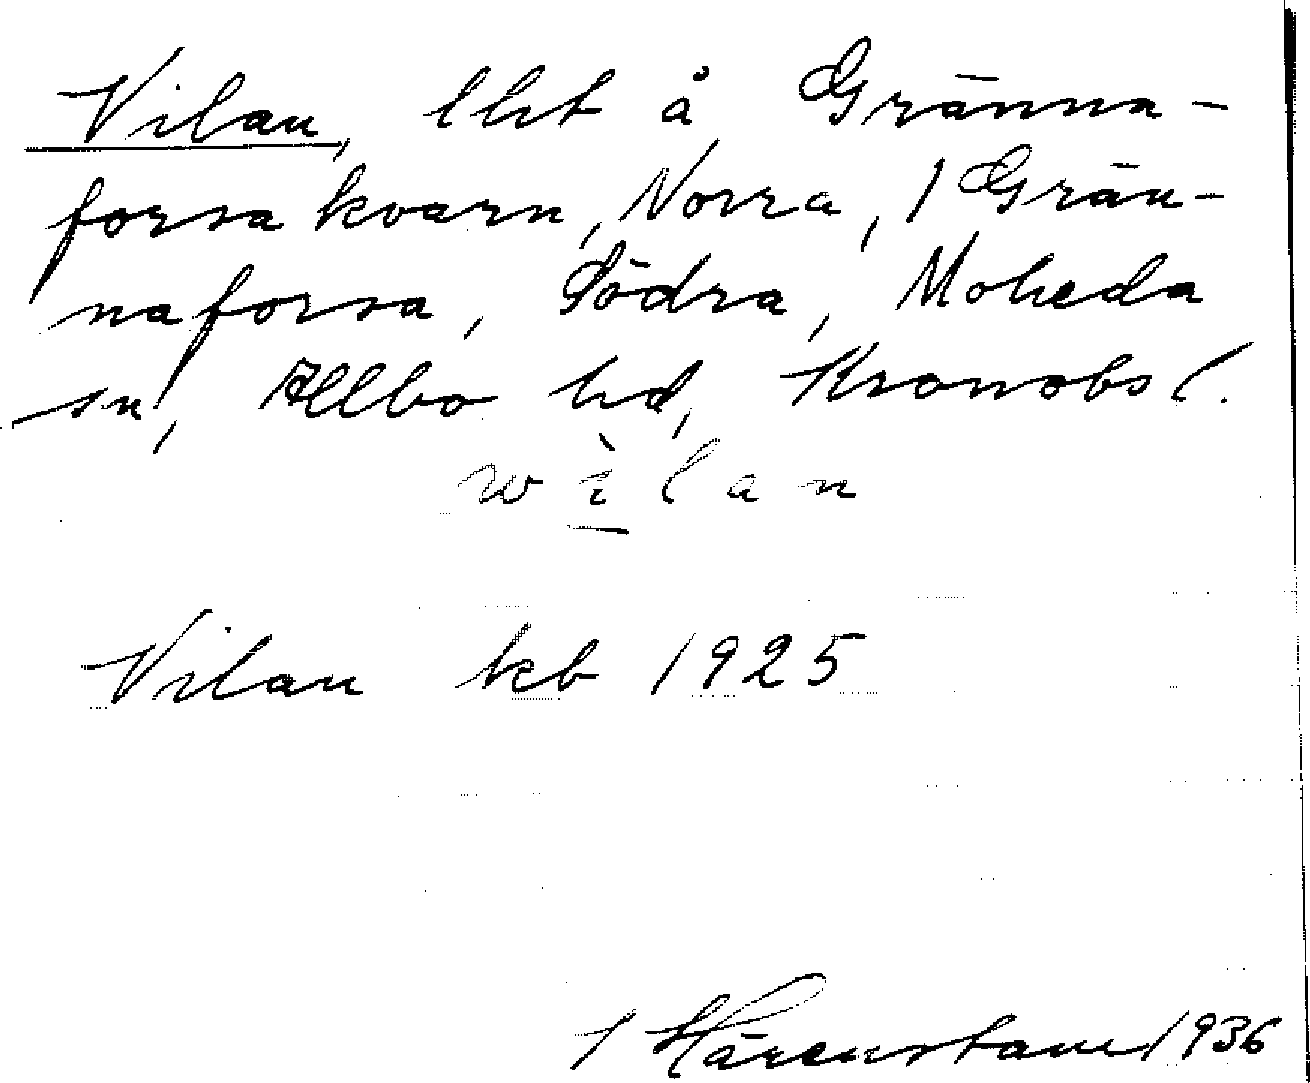 Vilan, lht å Gränna-
forsa kvarn, Norra, / Grän-
naforsa, Södra, Moheda
sn, Allbo hd, Kronobs l.
wìlan
Vilan kb 1925
/ Härenstam 1936